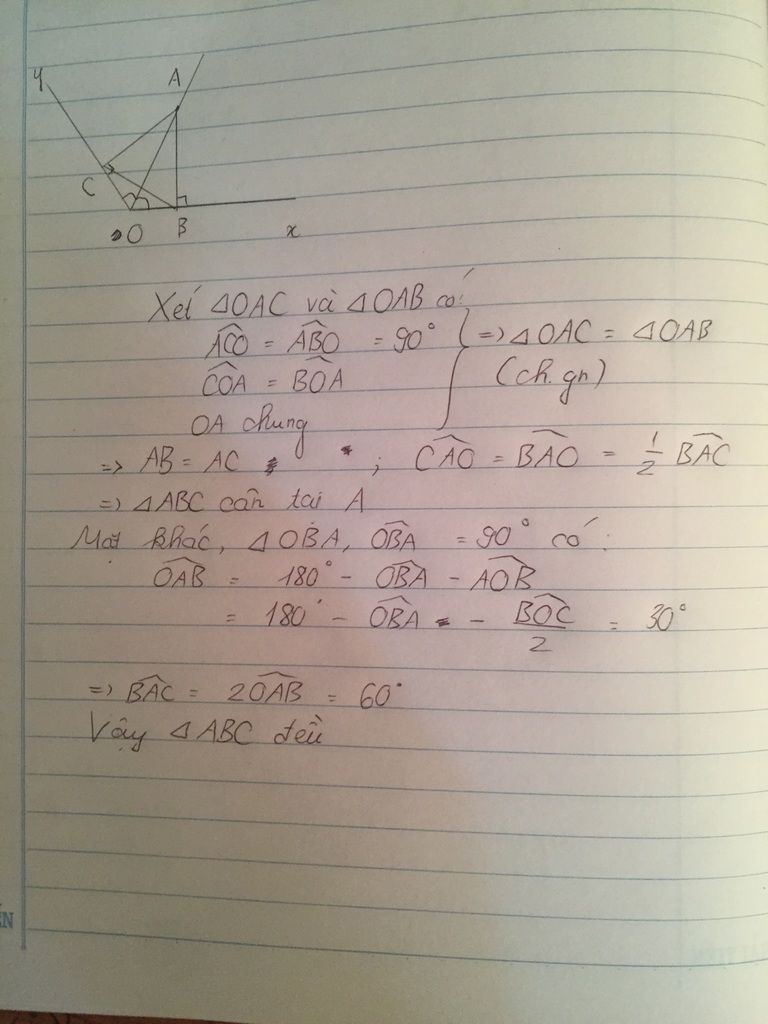 y
A
C
O B x
Xét ΔOAC và ΔOAB có:
$\widehat{ACO}$ = $\widehat{ABO}$ = 90° } => ΔOAC = ΔOAB
$\widehat{COA}$ = $\widehat{BOA}$ (ch.gn)
OA chung
=> AB = AC ; $\widehat{CAO}$ = $\widehat{BAO}$ = $\frac{1}{2}$ $\widehat{BAC}$
=> ΔABC cân tại A
Mặt khác, ΔOBA, $\widehat{OBA}$ = 90° có:
$\widehat{OAB}$ = 180° - $\widehat{OBA}$ - $\widehat{AOB}$
= 180° - $\widehat{OBA}$ - $\frac{\widehat{BOC}}{2}$ = 30°
=> $\widehat{BAC}$ = 2$\widehat{OAB}$ = 60°
Vậy ΔABC đều